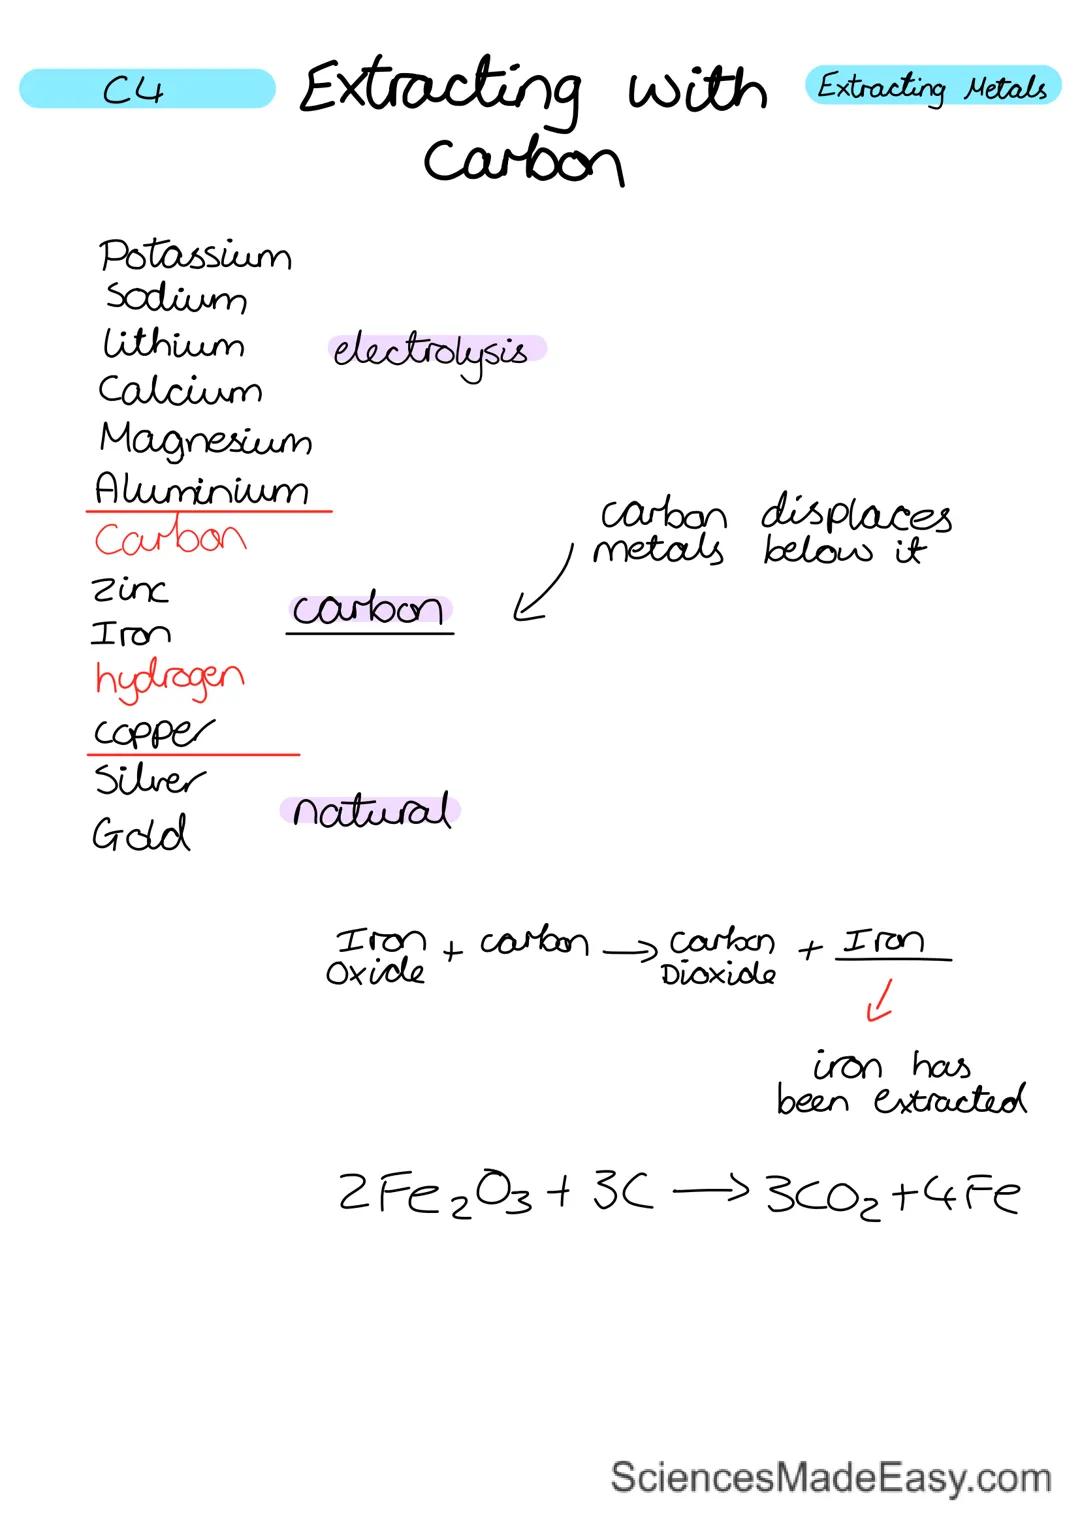 C4
Extracting with
Carbon
Extracting Metals
Potassium
Sodium
lithium
electrolysis
Calcium
Magnesium
Aluminium
Carbon
carbon displaces
metals below it
Zinc
carbon
Iron
hydrogen
copper
Silver
natural
Gold
Iron Oxide + carbon → Carbon Dioxide + Iron
iron has
been extracted
2Fe₂O₃ + 3C → 3CO₂ + 4Fe
SciencesMadeEasy.com